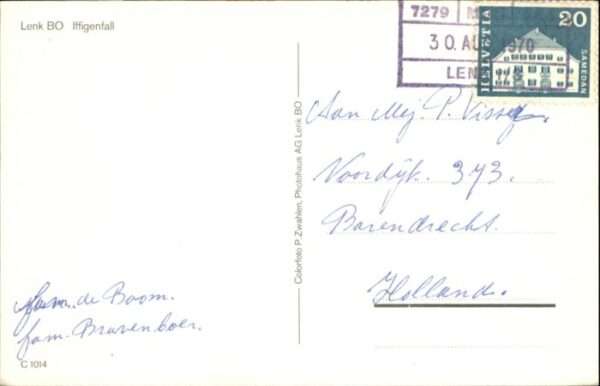 Lenk BO Iffigenfall
7279
30. AU 1970
LEN
HELVETIA
20
SAMEDAN
Aan Mej. P. Visser.
Voordijk. 373.
Barendrecht.
Holland.
Colorfoto P. Zwahlen, Photohaus AG Lenk BO
fam. de Boom.
fam. Bravenboer.
C 1014